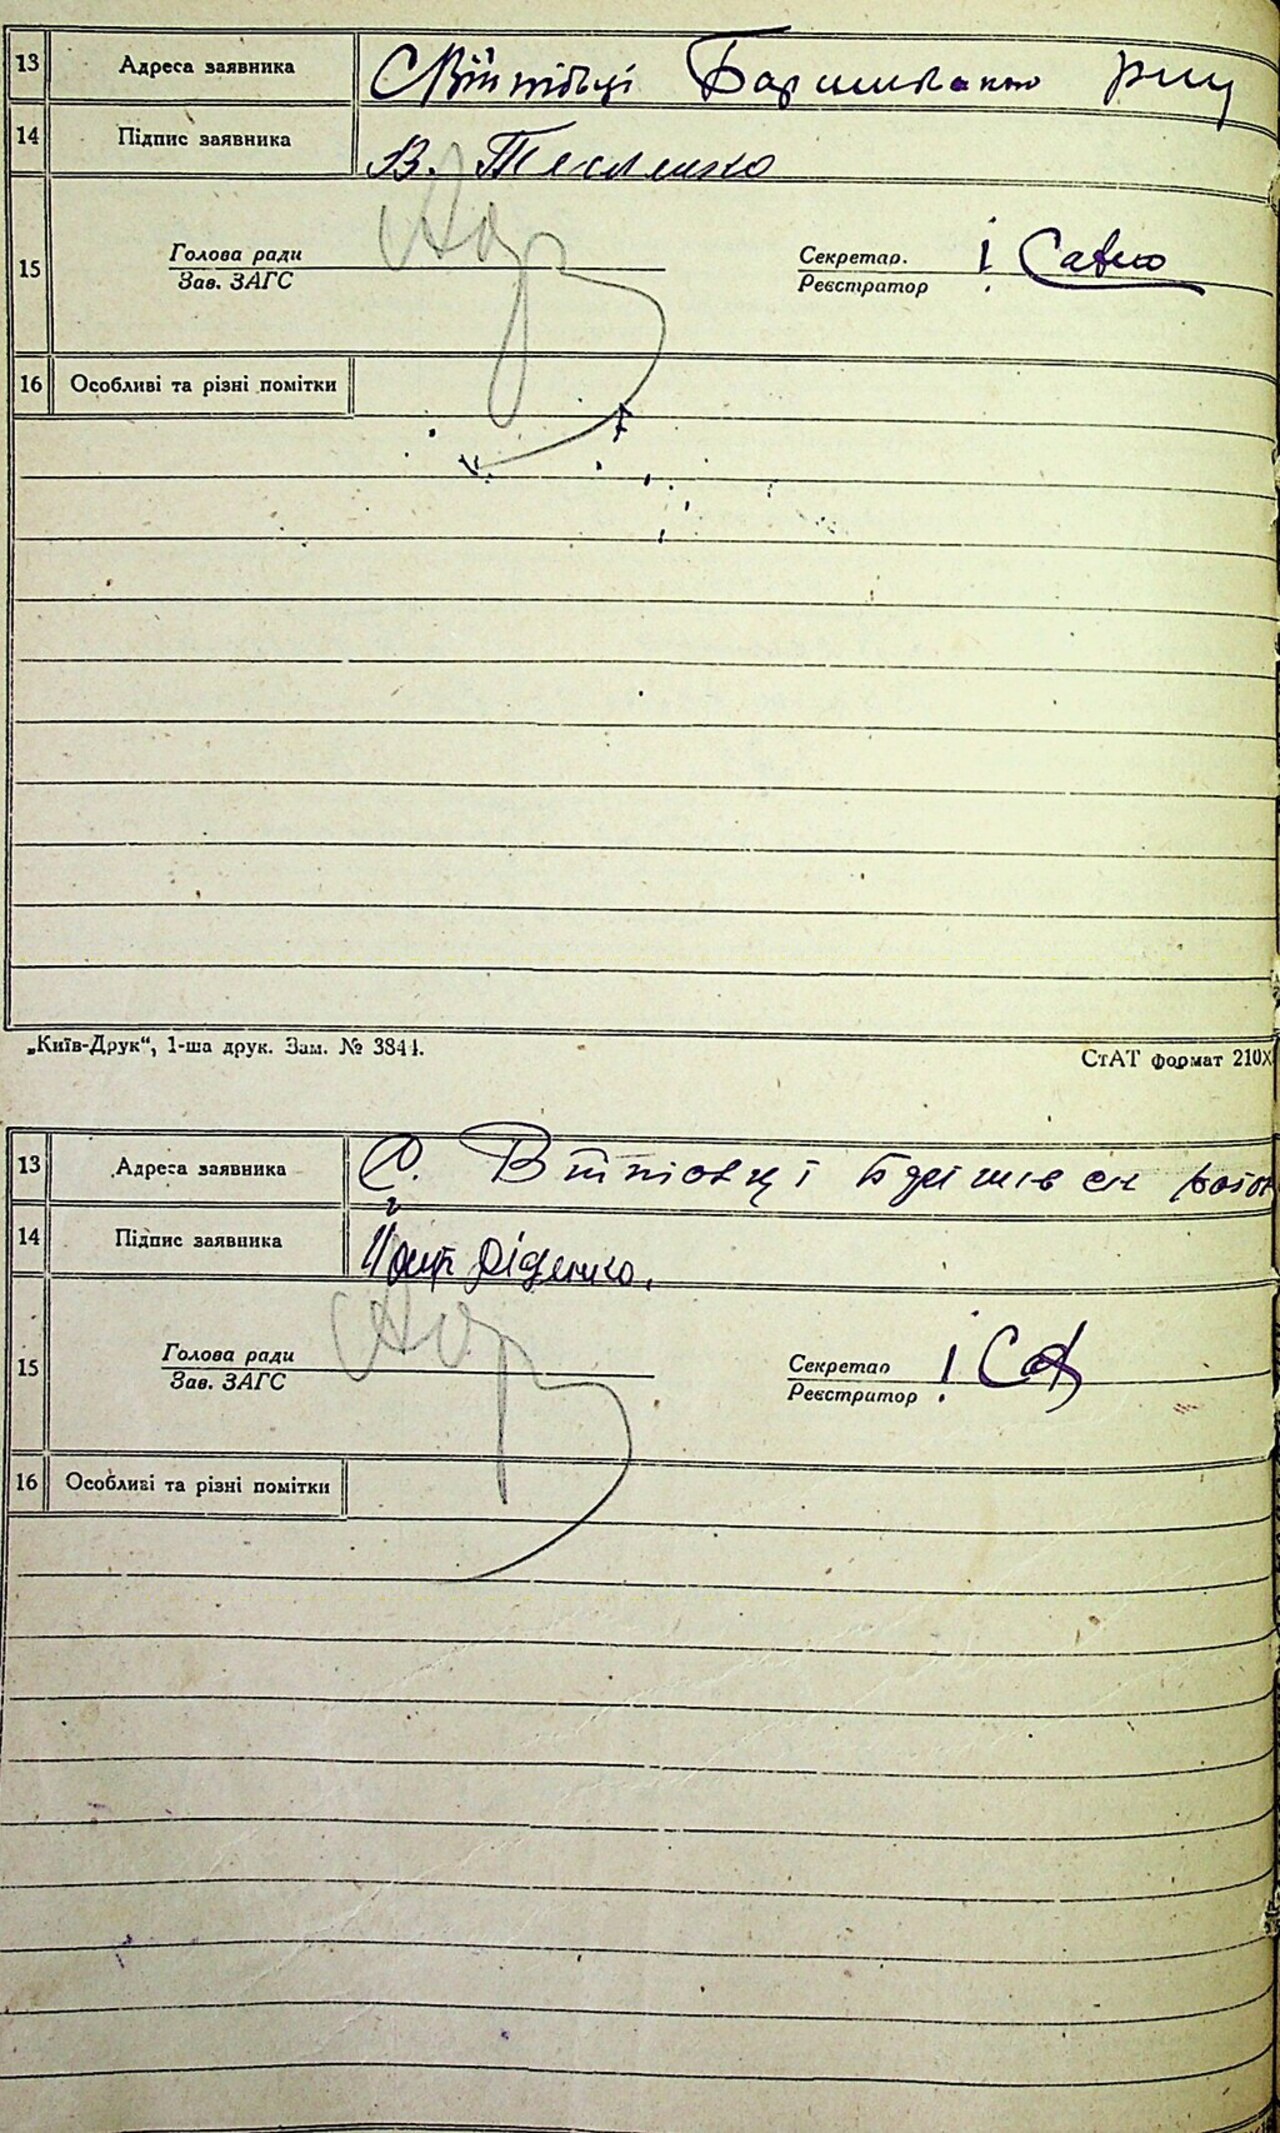 13 Адреса заявника С Війтівці Баришівського р-ну
14 Підпис заявника В. Тесленко
15 Голова ради Секретар. І Савко
Зав. ЗАГС Реєстратор
16 Особливі та різні помітки
„Київ-Друк“, 1-ша друк. Зам. № 3844. СтАТ формат 210X
13 Адреса заявника С. Втповці
14 Підпис заявника Діденко.
15 Голова ради Секретар
Зав. ЗАГС Реєстратор
16 Особливі та різні помітки